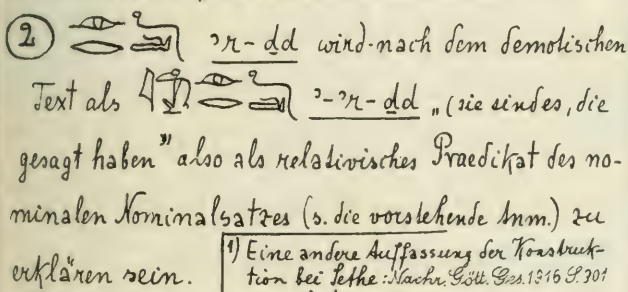 ② ꜣr-ḏd wird nach dem demotischen
Text als ꜣ-ꜣr-ḏd „(sie sind es, die
gesagt haben" also als relativisches Praedikat des no-
minalen Nominalsatzes (s. die vorstehende Anm.) zu
erklären sein.
1) Eine andere Auffassung der Konstruk-
tion bei Sethe: Nachr. Gött. Ges. 1916 S. 301